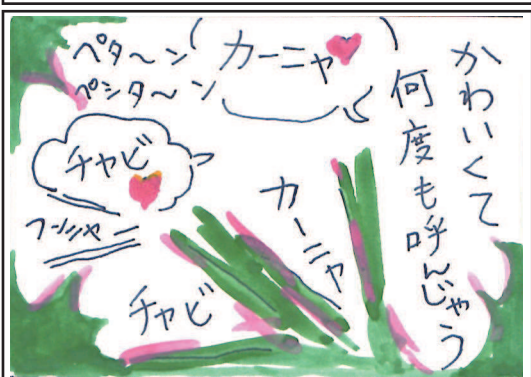 かわいくて
何度も呼んじゃう
カーニャ
ペタ〜ン
ペシタ〜ン
チャビ
フーシャー
カーニャ
チャビ